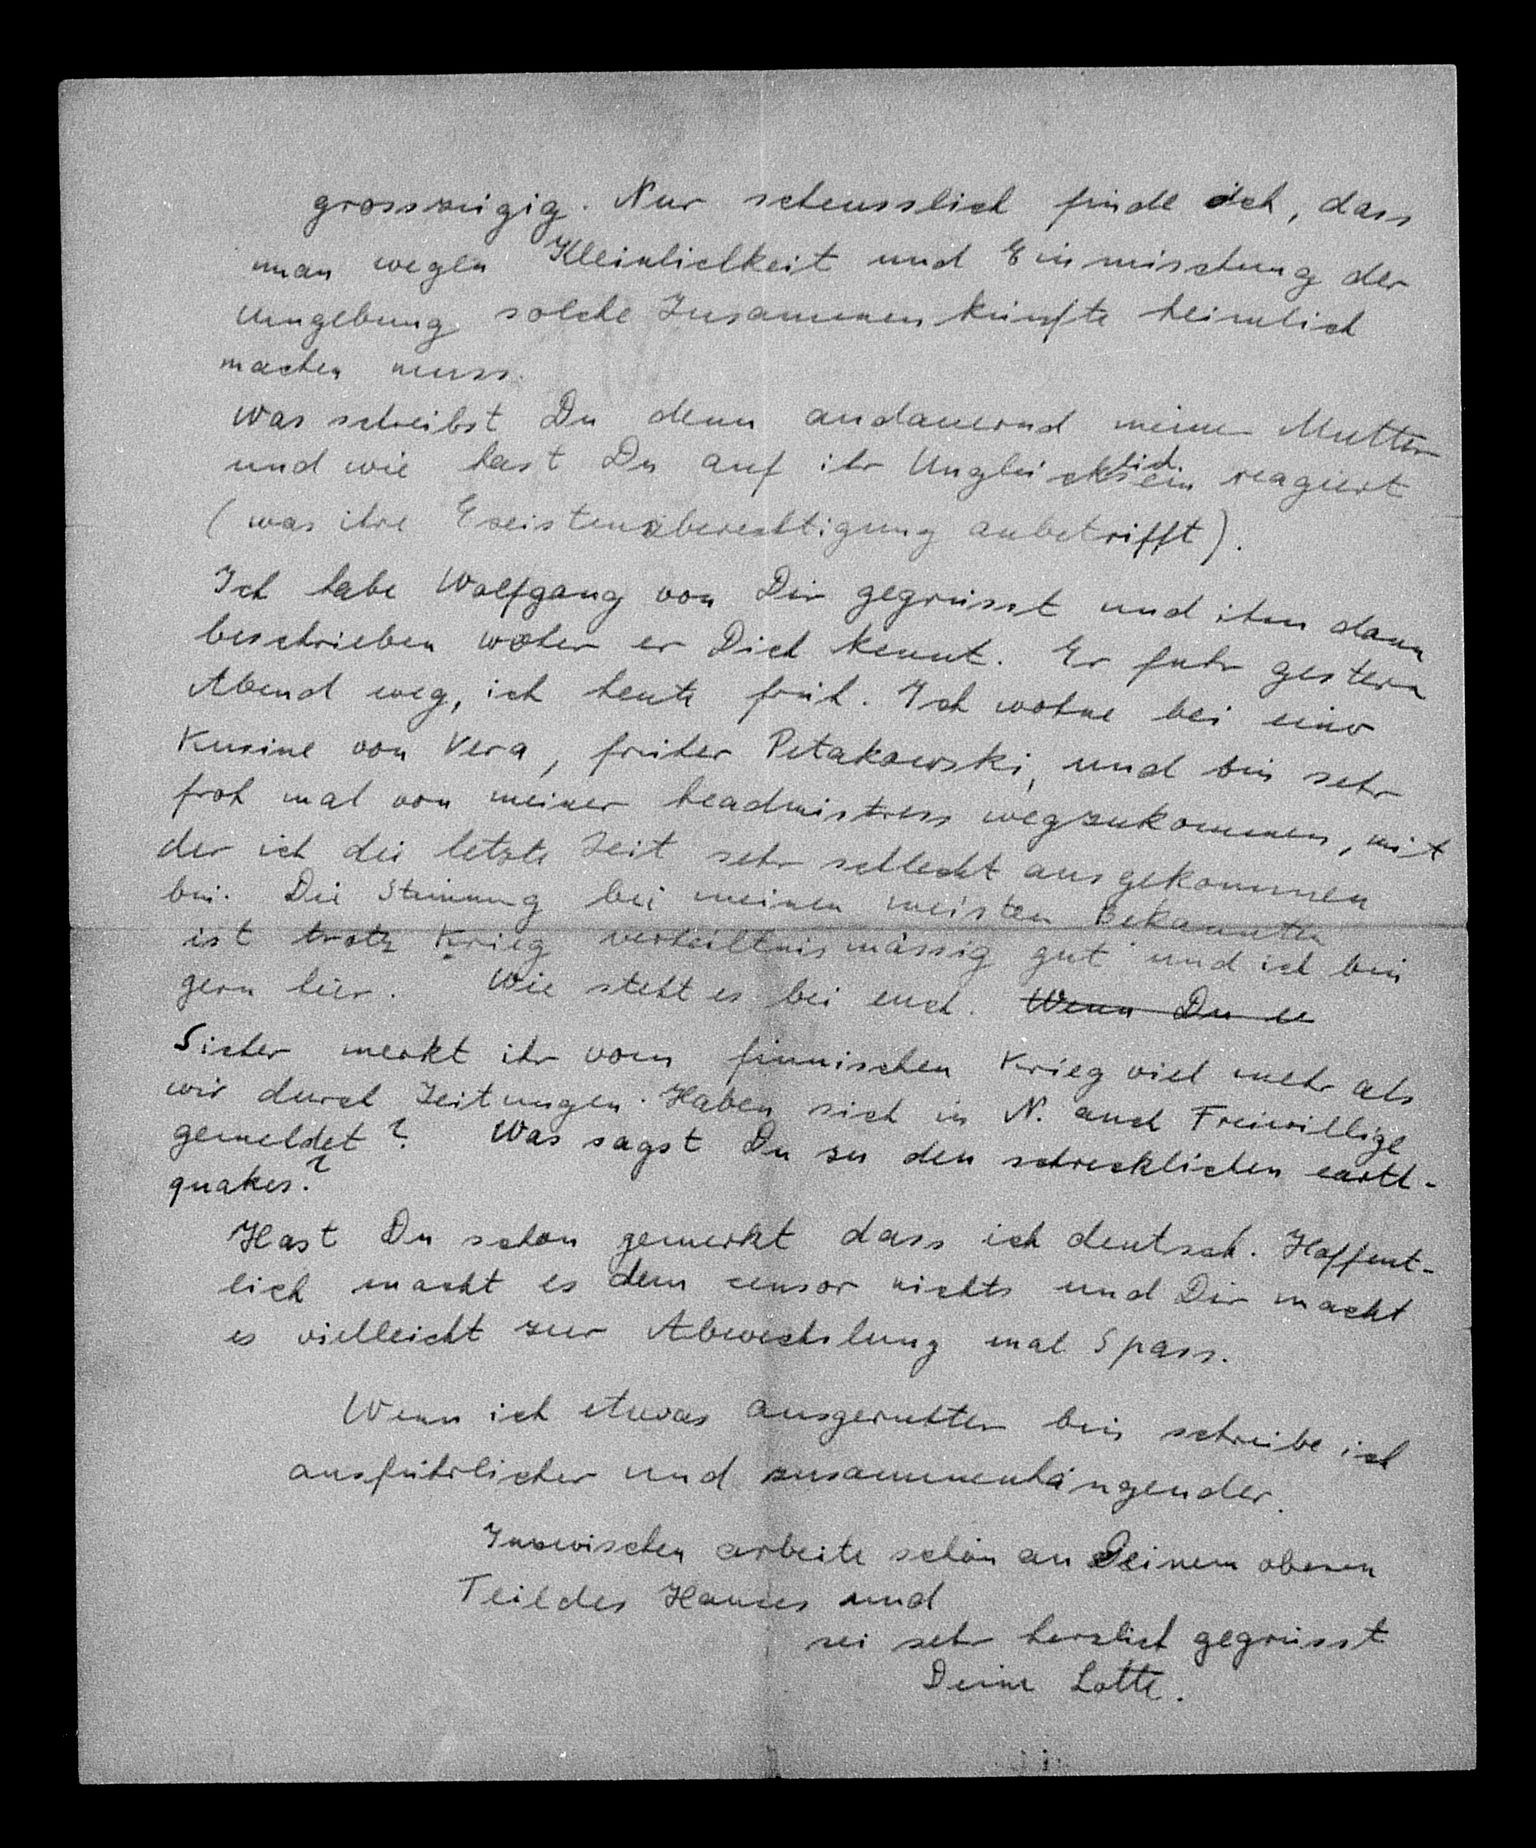 grosszügig. Nur scheusslich finde ich, dass
man wegen Kleinlichkeit und Einmischung der
Umgebung solche Zusammenkünfte heimlich
machen muss.
Was schreibst Du denn andauernd meiner Mutter
und wie hast Du auf ihr Unglücklichsein reagiert
(was ihre Existenzberechtigung anbetrifft).
Ich habe Wolfgang von Dir gegrüsst und ihm dann
beschrieben woher er Dich kennt. Er fuhr gestern
Abend weg, ich heute früh. Ich wohne bei einer
Kusine von Vera, früher Petakowski, und bin sehr
froh mal von meiner headmistress wegzukommen, mit
der ich die letzte Zeit sehr schlecht ausgekommen
bin. Die Stimmung bei meinen meisten Bekannten
ist trotz Krieg verhältnismässig gut und ich bin
gern hier. Wie steht es bei euch. Wenn Du
Sicher merkt ihr vom finnischen Krieg viel mehr als
wir durch Zeitungen. Haben sich in N. auch Freiwillige
gemeldet? Was sagst Du zu den schrecklichen earth-
quakes?
Hast Du schon gemerkt dass ich deutsch. Hoffent-
lich macht es dem censor nichts und Dir macht
es vielleicht zur Abwechslung mal Spass.
Wenn ich etwas ausgeruhter bin schreibe ich
ausführlicher und zusammenhängender.
Inzwischen arbeite schön an Deinem oberen
Teil des Hauses und
sei sehr herzlich gegrüsst
Deine Lotte.